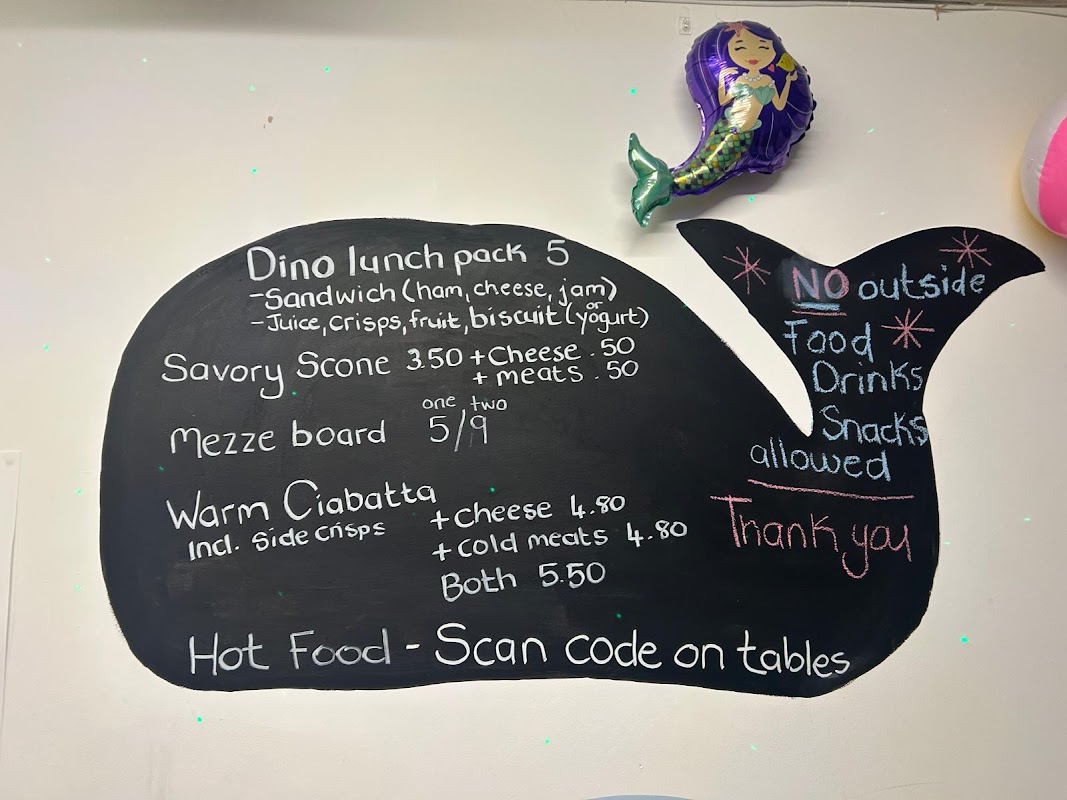 Dino lunch pack 5
-Sandwich (ham, cheese, jam)
-Juice, crisps, fruit, biscuit (or yogurt)
Savory Scone 3.50 + Cheese .50
+ meats .50
one two
Mezze board 5/9
Warm Ciabatta
Incl. Side crisps
+ cheese 4.80
+ cold meats 4.80
Both 5.50
Hot Food - Scan code on tables
NO outside
Food
Drinks
Snacks
allowed
Thank you